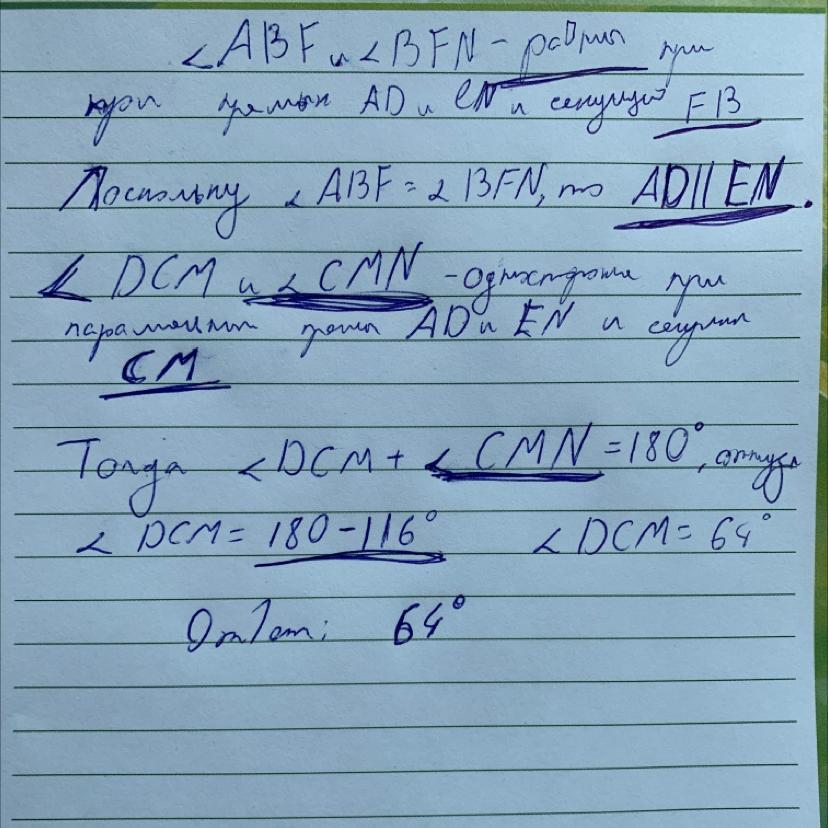 ∠ABF и ∠BFN - равны при
при прямых AD и EN и секущей FB
Поскольку ∠ABF = ∠BFN, то AD || EN.
∠ DCM и ∠ CMN - односторонние при
параллельных прямых AD и EN и секущей
CM
Тогда ∠DCM + ∠ CMN = 180°, откуда
∠ DCM = 180 - 116° ∠ DCM = 64°
Ответ: 64°